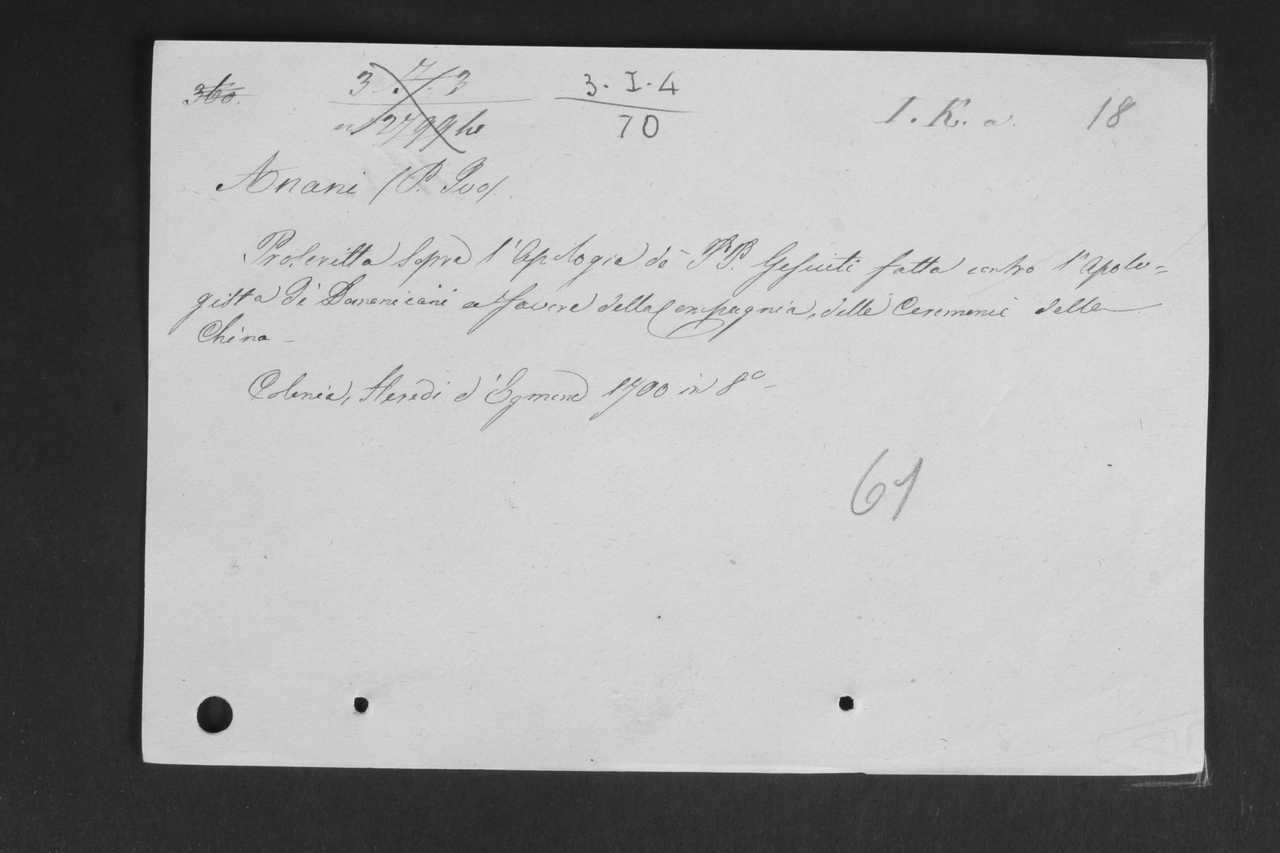 360.
3.7.3
3. I. 4
70
I. K. a. 18
Anani (P. Ivo)
Proscritta sopra l'Apologia de' PP. Gesuiti fatta contro l'Apolo=
gista di Domenicani a favore della Compagnia, delle Ceremonie della
China
Colonia, Heredi d'Egmond 1700 in 8º
61